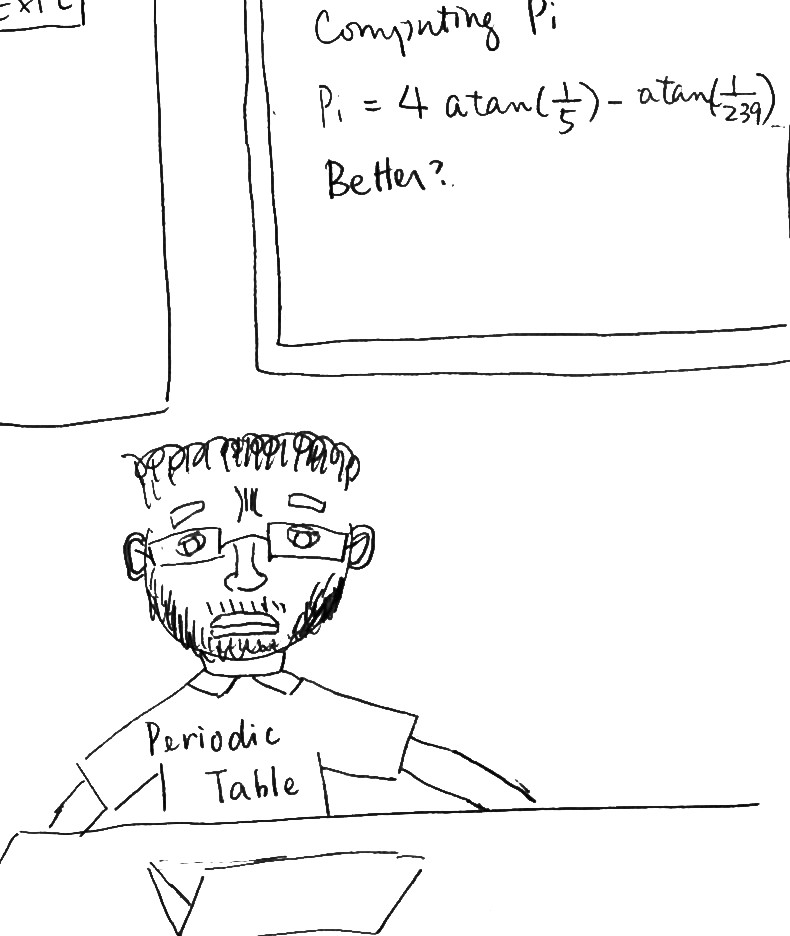 EXIT
Computing Pi
Pi = 4 atan(1/5) - atan(1/239)
Better?
Periodic
Table